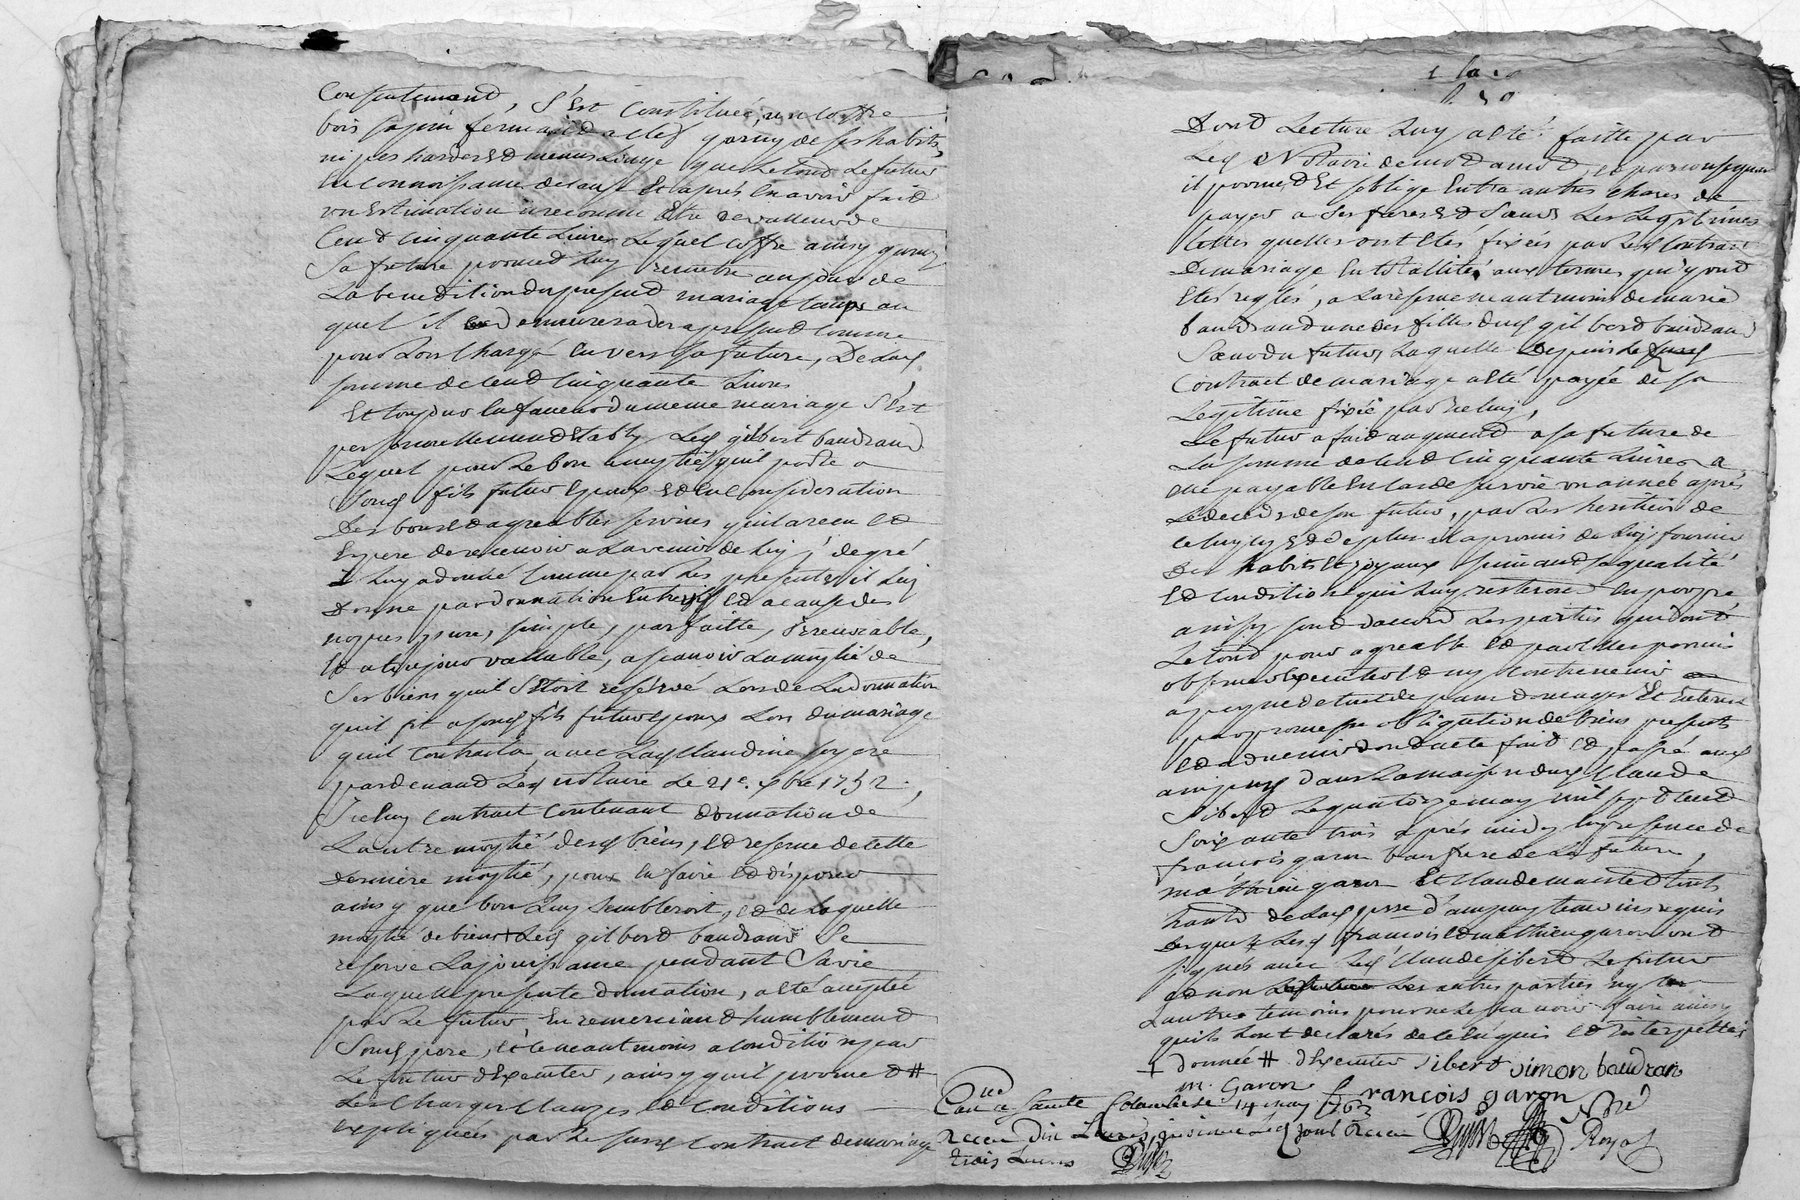 Consentement, S'Est Constituée, un coffre
bois sapin fermant a clef garny de ses habits,
nipes hardes Et menus Linge que Led. Le futur
En connoissance de cause Et apres En avoir fait
un Estimation a reconnu Etre de valleur de
Cent cinquante Livres Lequel coffre ainsy garny
Sa future promet Luy remetre au jour de
La benediction du present mariage temps au
quel il demeurera des a present comme
pour Lors Chargé Envers sa future, De Lad.
somme de cent cinquante Livres
Et toujour En faveur du meme mariage S'Est
personnellement Etably Led. gilbert baudrand
Lequel pour Le bon amytié qu'il porte a
Sond. fils futur Epoux Et En Consideration
Des bons Et agreables services qu'il a recu Et
Espere de recevoir a L'avenir de Luy, de gré
Luy a donné comme par Les presentes il Luy
Donne par donnation Entre vifs Et a cause de
nopces pure, simple, parfaitte, Irrevocable,
Et a toujour vallable, a scavoir La moytié de
Ses biens qu'il S'Etoit reservé Lors de La donnation
qu'il fit a sond. fils futur Epoux Lors du mariage
qu'il Contracta avec Lad. Claudine
pardevant Led. notaire Le 21e. xbre 1752.
Icelluy contract contenant donnation de
L'autre moytié desd. biens, Et reserve de cette
Derniere moytié, pour En faire Et disposer
ainsy que bon Luy Sembleroit, Et de Laquelle
moytié de biens + Led. gilbert baudrand Se
reserve La jouissance pendant Sa vie
Laquelle presente donnation, a Eté acceptée
par Le futur En remerciant humblement
Sond. pere, Et ce neantmoins a condition par
Le futur d'Executer, ainsy qu'il promet #
Les Charges Clauzes Et Conditions
Expliquées par Le susd. Contract de mariage
Dont Lecture Luy a Eté faitte par
Led. Notaire de mot a mot, et par consequent
il promet Et s'oblige Entre autres choses de
payer a Ses freres Et Sœurs Les Legitimes
telles quelles ont Etés fixées par Led. Contract
De mariage En totallité aux termes qui y ont
Etés reglés, a La reserve neantmoins de marie
baudrand une des filles dud. gilbert baudrand
Sœur du futur Laquelle Depuis Le susd.
Contract de mariage a Eté payée de sa
Legitime fixée par Icelluy,
Le futur a fait augment a sa future de
La somme de cent cinquante Livres a
Elle payable En cas de survie un année aprés
Le deceds de son futur, par Les heritiers de
celuy cy Et De plus il a promis de Luy fournir
Des habits Et joyaux suivant Sa qualité
Et condition qui Luy resteront En propre
ainsy sont d'accord Les parties qui ont
Le tout pour agreable Et par Elles promis
observer Executer Et ny Contrevenir
a peyne de tous depans domages Et interets
par promesse obligation de biens presents
Et a venir dont acte fait Et passé aud.
ampuis dans La maison dud. Claude
Sibert Le quatorze may mil sept cent
Soix ante trois aprés midy En presence de
françois garon beaufrere de La future,
mathieu garon Et Claude
habts de Lad. psse d'ampuy temoins requis
Desquels Lesd. françois Et mathieu garon ont
signés avec Led. Claude sibert Le futur
Et non Les autres parties ny
L'autre temoins pour ne Le scavoir faire ainsy
qu'ils L'ont declarés de ce Enquis Et Interpellés
+ donnée # d'Executer Sibert simon baudran
m. Garon françois garon
Con.lé a Sainte Colombe Le 14 may 1763
Receu Dix Livres, Led. Receu
trois Livres
Nore
Royal